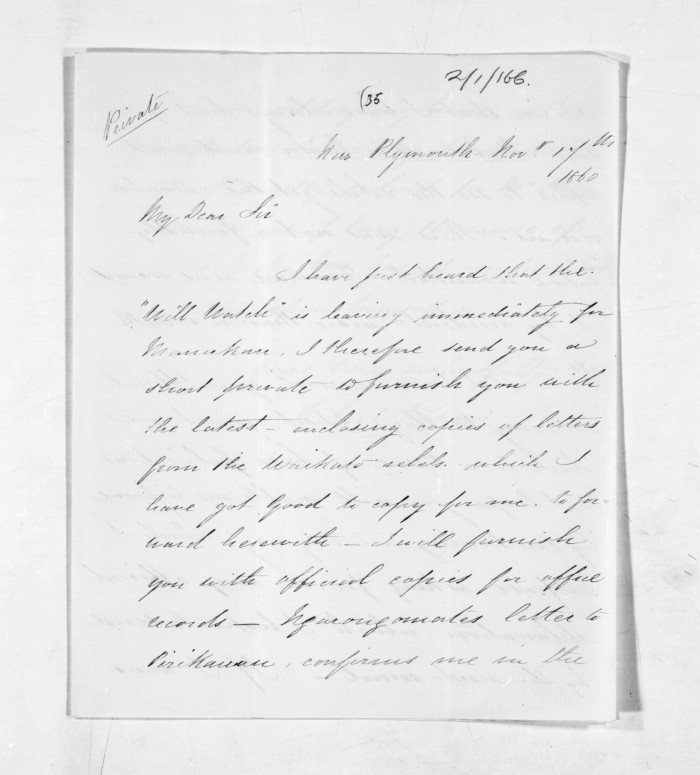 2/1/166.
(35
Private
New Plymouth Novr 17th
1860
My Dear Sir
I have just heard that the
"Will Watch" is leaving immediately for
Manukau, I therefore send you a
short private to furnish you with
the latest - enclosing copies of letters
from the Waikato rebels which I
have got Good to copy for me to for-
ward herewith - I will furnish
you with official copies for office
records - Ngarongomates letter to
Pirikawau, confirms me in the